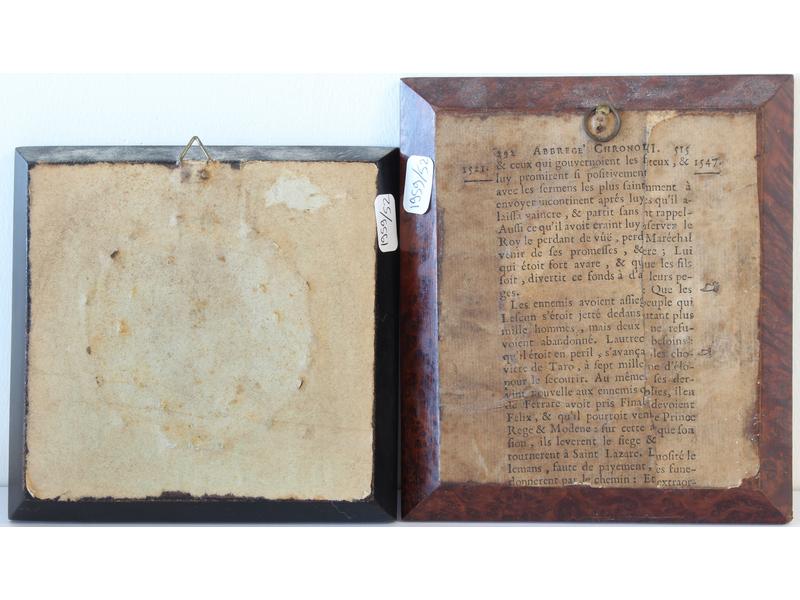 1959/52
1959/52
292 ABBREGE' CHRONO I. 515
1521. & ceux qui gouvernoient les sieux, & 1547.
luy promirent si positivement
avec les sermens les plus saint mment à
envoyer incontinent aprés luy s qu'il a-
laissa vaincre, & partit sans nt rappel-
Aussi ce qu'il avoit craint luy aserver le
Roy le perdant de vûë, perd Maréchal
venir de ses promesses, & ere ; Lui
qui étoit fort avare, & q ue les fils
soit, divertit ce fonds à d'a leurs pe-
ges. : Que les
Les ennemis avoient assieg euple qui
Lescun s'étoit jetté dedans utant plus
mille hommes, mais deux ne refu-
voient abandonné. Lautrec besoins :
qu'il étoit en peril, s'avança les cho-
viere de Taro, à sept mille ne d'élo-
pour le secourir. Au même ses der-
vint nouvelle aux ennemis q blies, il en
de Ferrare avoit pris Final devoient
Felix, & qu'il pourroit ven e Prince
Rege & Modene : sur cette a que son
sion, ils leverent le siege &
tournerent à Saint Lazare. L uosité le
lemans, faute de payement, es fune-
donnerent par le chemin : Et extraor-